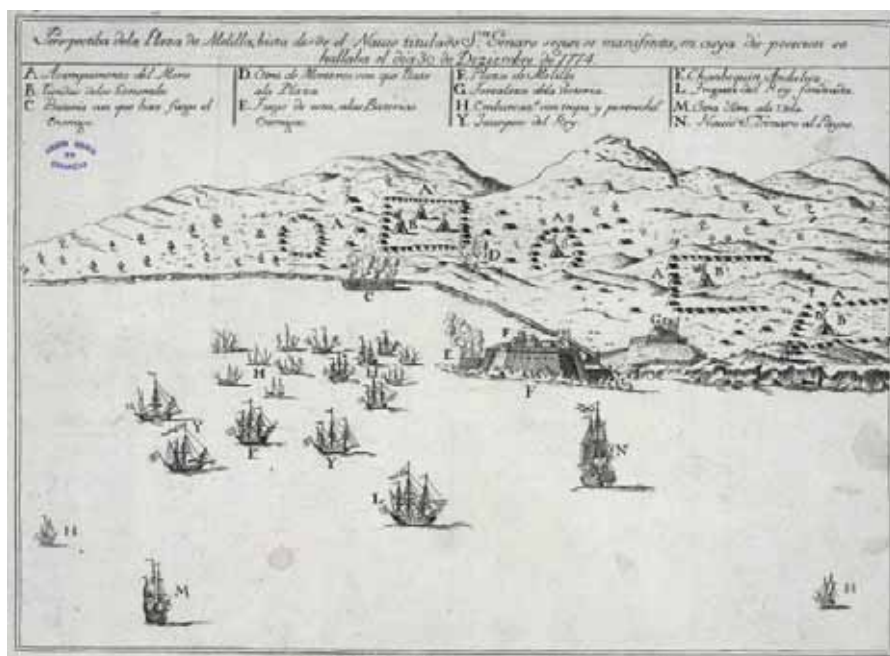 Perspectiba dela Plaza de Melilla, bista desde el Navio titulado Sn. Genaro segun se manifiesta, en cuya de posicion se
hallaba el dia 30 de Deziembre de 1774.
A. Acampamentos del Moro
B. Tiendas delos Generales
C. Bateria con que hiso fuego el
Enemigo.
D. Otra de Morteros con que
ala Plaza
E. Fuego de esta, alas Baterias
Enemigas.
F. Plaza de Melilla
G. Fortaleza dela Victoria.
H. Embarcas. con tropa y pertrechos
Y. del Rey.
K. Chambequin Andaluz.
L. Fragata del Rey fondeada.
M. Otra ala Vela.
N. Navio S. Genaro al Payro.
A
A
B
A
D
A
B
C
A
B
G
E
F
H
H
Y
F
Y
N
L
H
M
H